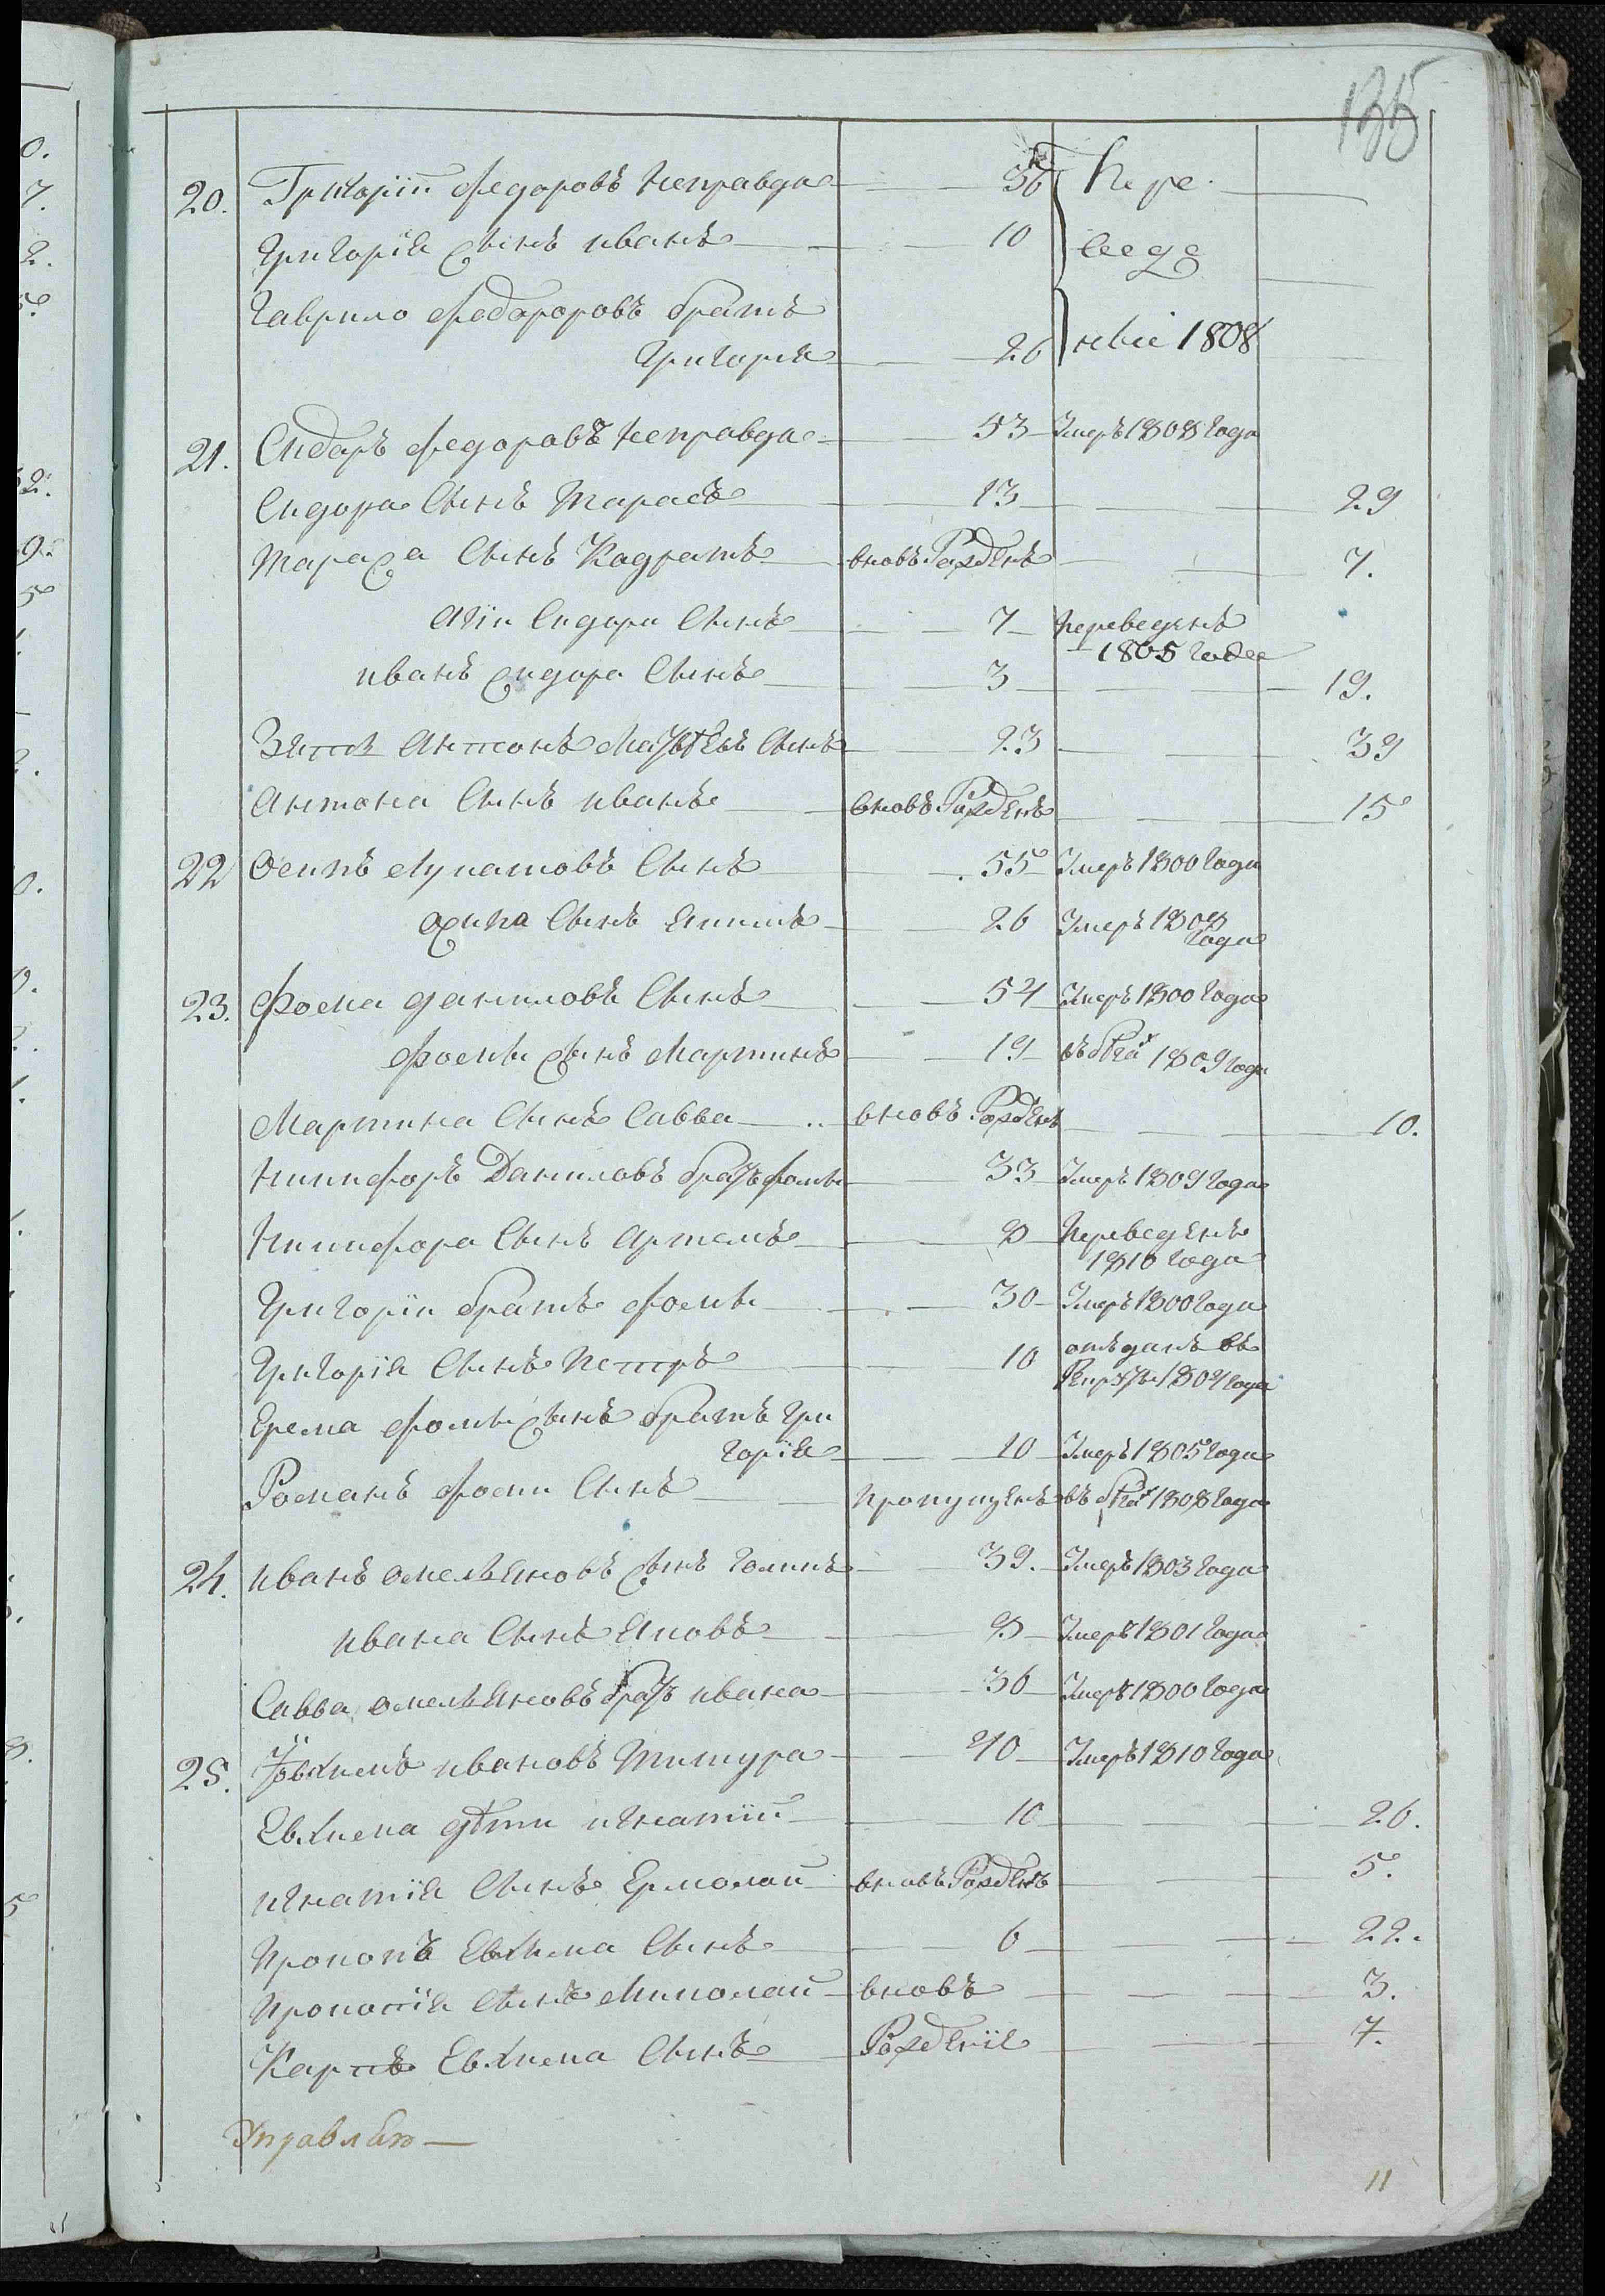 135
20. Григорій Федоровъ Неправда 36 Пере
Григорія сынъ иванъ 10 веде
Гаврило Федороровъ братъ
Григорія 26 ны 1808
21. Сидоръ Федоровъ Неправда 53 Умеръ 1808 Года
Сидора Сынъ Тарасъ 13 29
Тараса Сынъ Кодратъ вновь Рожденъ 7.
Сидора Сынъ 7 переведенъ
1805 Года
иванъ Сидора Сынъ 3 19.
Зять Антонъ Матвѣевъ Сынъ 23 39
Антона Сынъ иванъ вновь Рожденъ 15
22 Осипъ Лукашовъ Сынъ 55 Умеръ 1800 Года
осипа Сынъ Екимъ 26 Умеръ 1808
Года
23. Фома даниловъ Сынъ 54 Умеръ 1800 Года
Фомы Сынъ Мартинъ 19 въ бегах 1809 Года
Мартина Сынъ Савва вновь Рожденъ 10.
Никифоръ Даниловъ братъ фомы 33 Умеръ 1809 Года
Никифора Сынъ Артемъ 8 Переведенъ
1810 Года
Григорій братъ Фомы 30 Умеръ 1800 Года
Григорія Сынъ Петръ 10 отъданъ въ
Рекруты 1804 Года
Ерема Фомы Сынъ братъ Гри
горія 10 Умеръ 1805 Года
Романъ Фоми Сынъ пропущенъ въ бегах 1808 Года
24. иванъ омельяновъ Сынъ Голикъ 39. Умеръ 1803 Года
ивана Сынъ Яковъ 8 Умеръ 1801 Года
Савва омельяновъ братъ ивана 36 Умеръ 1800 Года
25. ивановъ Титура 40 Умеръ 1810 Года
Евхиема дѣти игнатій 10 26.
игнатія Сынъ Ермолай вновь Рожденъ 5.
Прокопъ Евхима Сынъ 6 22.
Прокопія Сынъ Миколай вновь 3.
Карпъ Евхиема Сынъ Рожденіе 7.
11